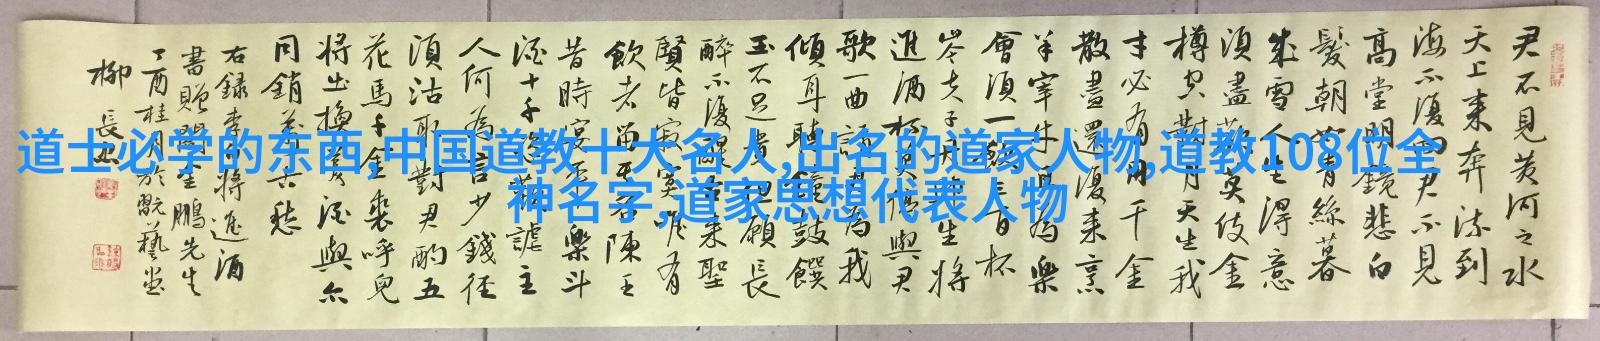 道士必学的东西,中国道教十大名人,出名的道家人物,道教108位全
神名字,道家思想代表人物
君不見黃河之水
天上來奔流到
海不復回君不見
高堂明鏡悲白
髮朝如青絲暮
成雪人生得意
須盡歡莫使金
樽空對月天生我
才必有用千金
散盡還復來烹
羊宰牛且為樂
會須一飲三百杯
岑夫子丹丘生將
進酒杯莫停與君
歌一曲請君為我
傾耳聽鐘鼓饌
玉不足貴但願長
醉不復醒古來聖
賢皆寂寞唯有
飲者留其名陳王
昔時宴平樂斗
酒十千恣歡謔主
人何為言少錢徑
須沽取對君酌五
花馬千金裘呼兒
將出換美酒與尔
同銷萬古愁
右錄李白將進酒
書贈生鵬先生
丁酉桂月於藝堂
柳長忠